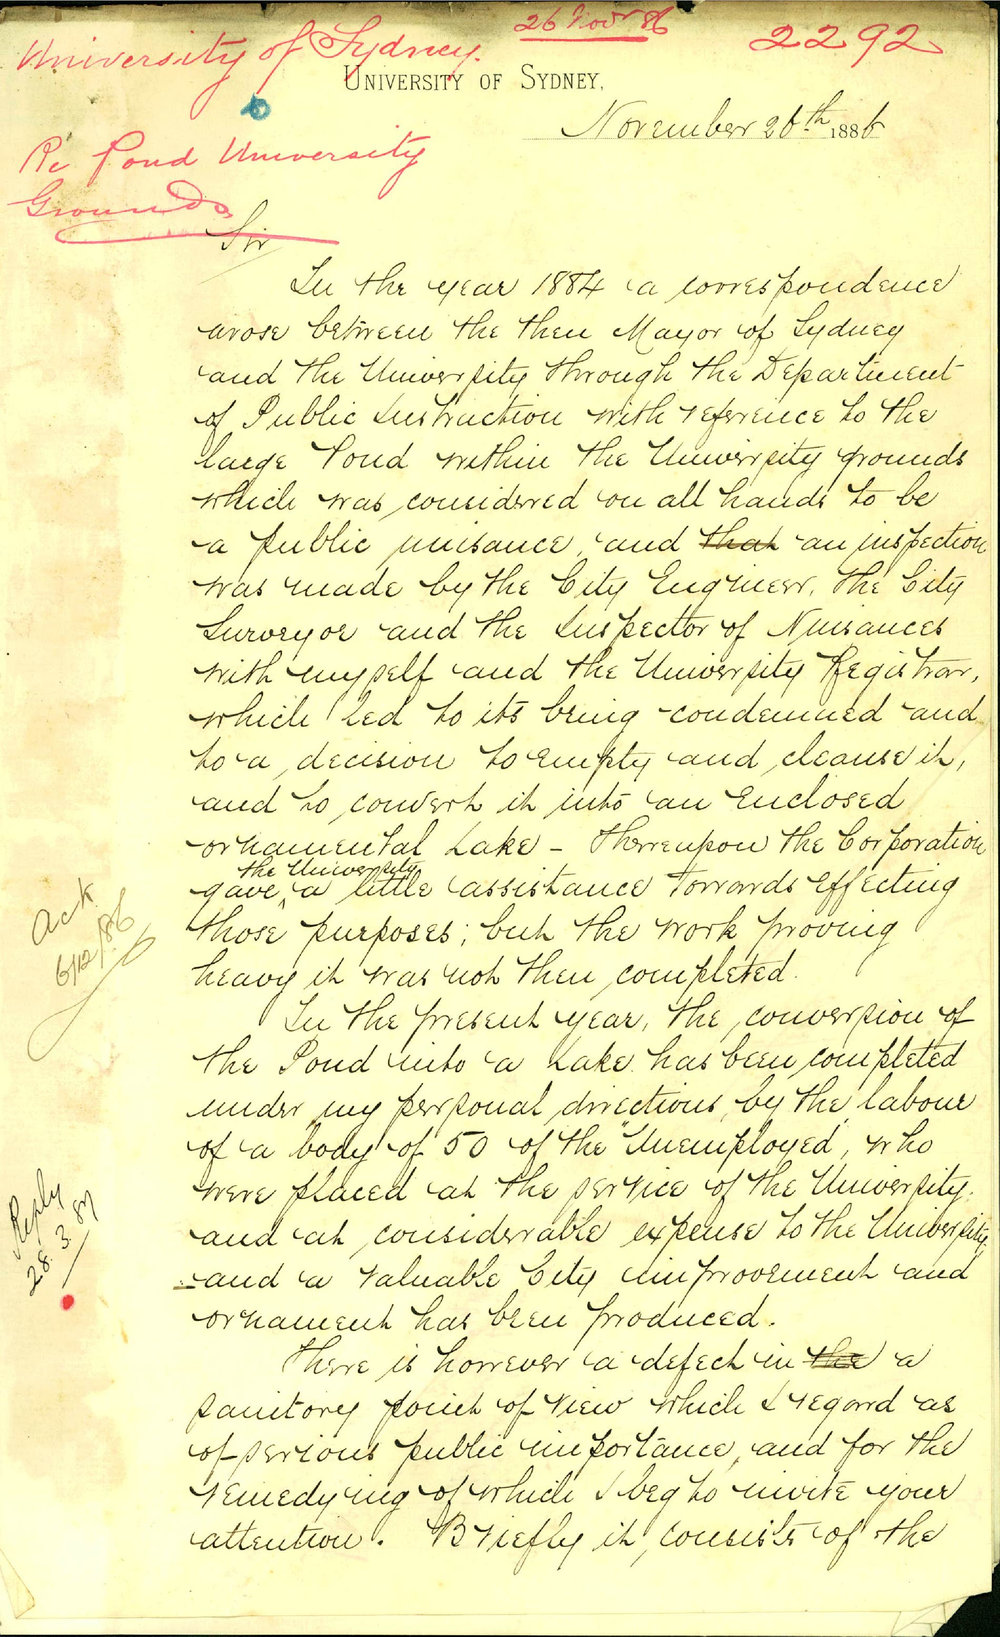 26 Novr 86
2292
University of Sydney.
UNIVERSITY OF SYDNEY,
November 26th 1886
Re Pond University
Grounds
Sir
In the year 1884 a correspondence
arose between the then Mayor of Sydney
and the University through the Department
of Public Instruction with reference to the
large Pond within the University grounds
which was considered on all hands to be
a public nuisance, and that an inspection
was made by the City Engineer, the City
Surveyor and the Inspector of Nuisances
with myself and the University Registrar,
which led to its being condemned and
to a decision to empty and cleanse it,
and to convert it into an enclosed
ornamental Lake - Thereupon the Corporation
the University
gave a little assistance towards effecting
those purposes; but the work proving
heavy it was not then completed.
In the present year, the conversion of
the Pond into a Lake has been completed
under my personal directions by the labour
of a body of 50 of the "Unemployed, who
were placed at the service of the University.
and at considerable expense to the University,
and a valuable City improvement and
ornament has been produced.
There is however a defect in the a
sanitory point of view which I regard as
of serious public importance, and for the
remedying of which I beg to invite your
attention. Briefly it consists of the
Ack
6/12/86
Reply
28.3.87